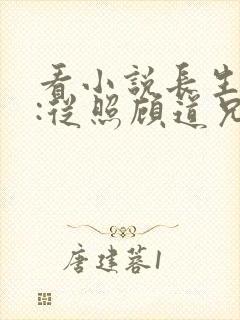 看小說長生
:從照顧道兄
唐建蓉1